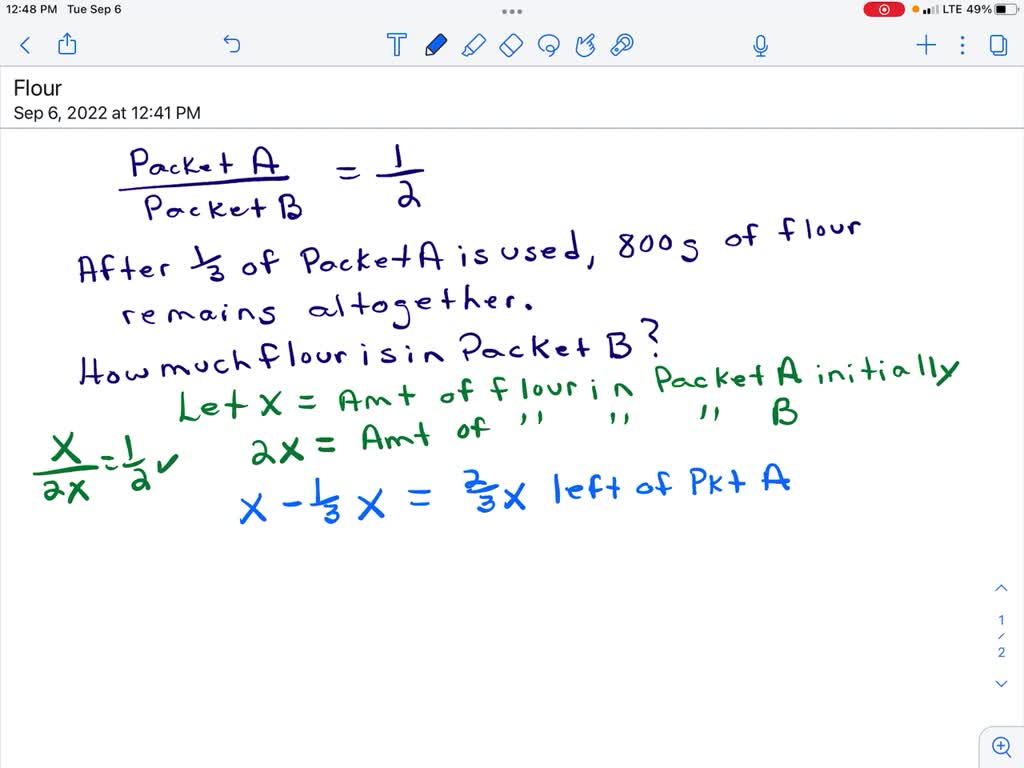 12:48 PM Tue Sep 6
LTE 49%
Flour
Sep 6, 2022 at 12:41 PM
Packet A / Packet B = 1/2
After 1/3 of Packet A is used, 800g of flour
remains altogether.
How much flour is in Packet B?
Let X = Amt of flour in Packet A initially
2X = Amt of " " " B
X/2X = 1/2 ✓
X - 1/3 X = 2/3 X left of Pkt A
1
/
2